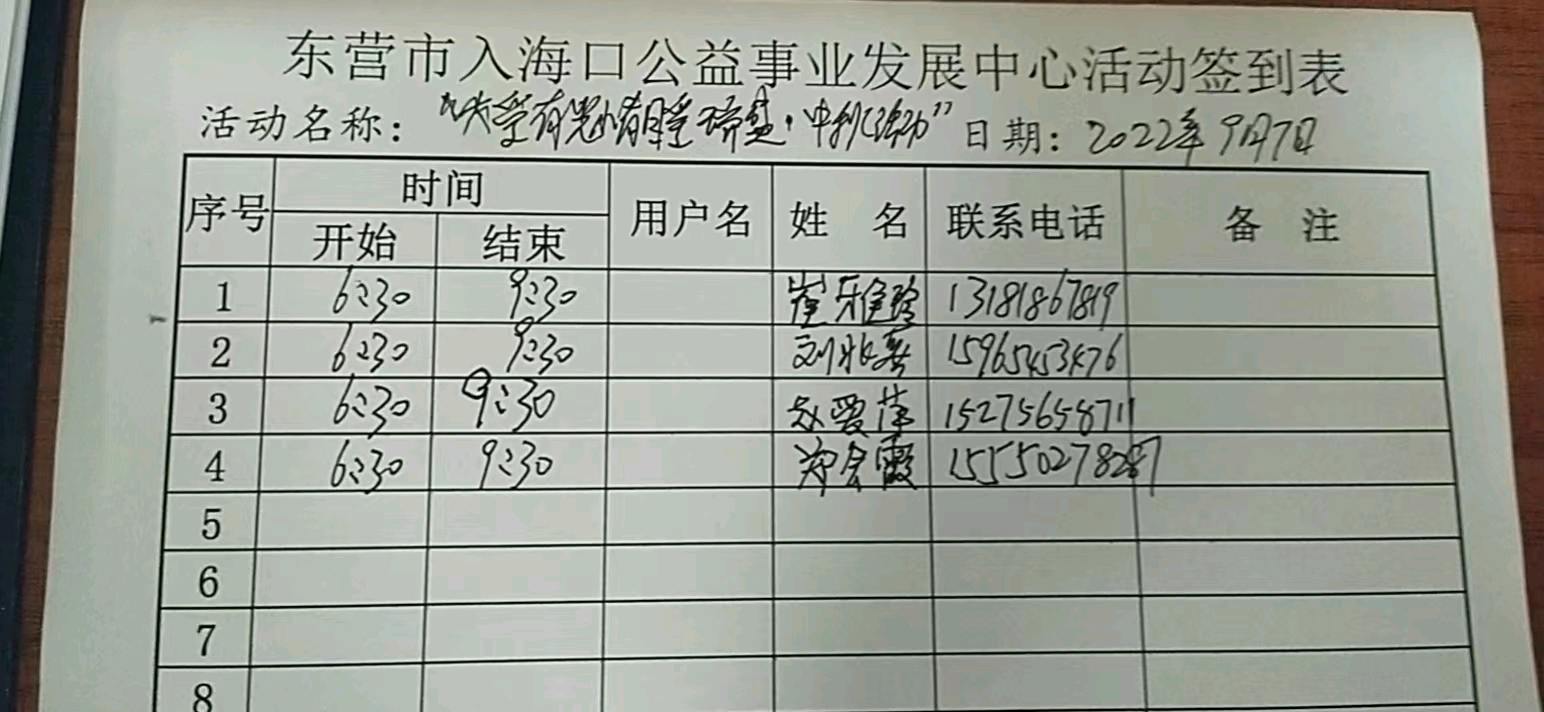 东营市入海口公益事业发展中心活动签到表
活动名称： 日期：2022年9月7日
序号 时间 用户名 姓 名 联系电话 备 注
开始 结束
1 6:30 9:30 崔雅珍 13181867819
2 6:30 9:30 刘兆英 15965453476
3 6:30 9:30 赵爱萍 15275658711
4 6:30 9:30 郑会霞 15550278287
5
6
7
8